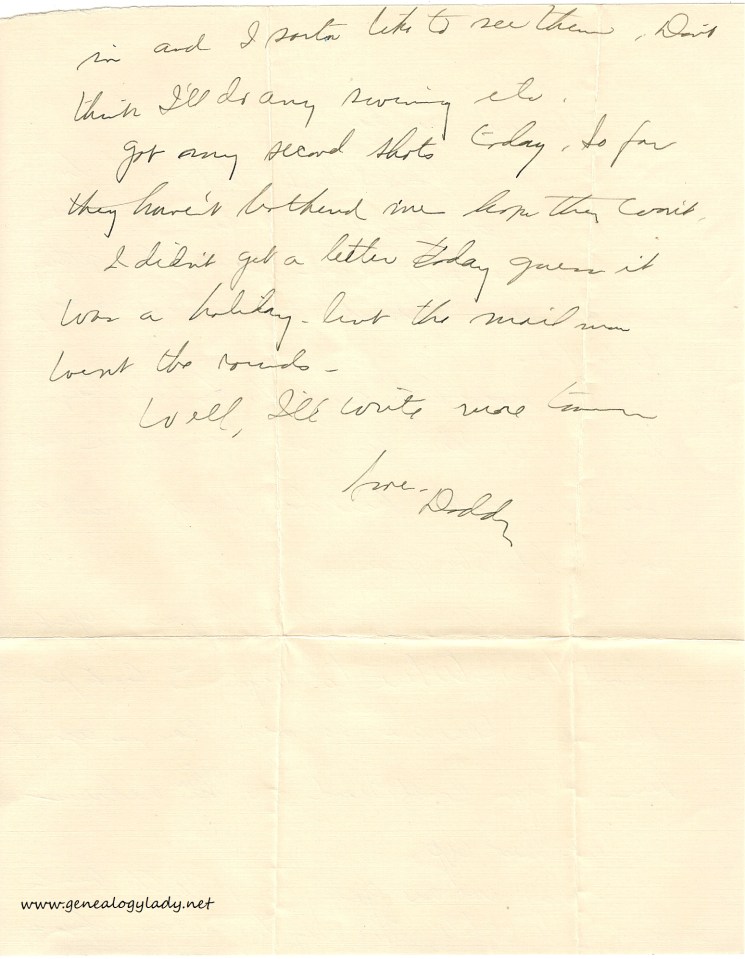 in and I sorta like to see them. Don't
think I'll do any swiming etc.
Got my second shots today. So far
they haven't bothered me hope they won't.
I didn't get a letter today guess it
was a holiday - but the mail man
went the rounds -
Well, I'll write more
Love - Daddy
www.genealogylady.net